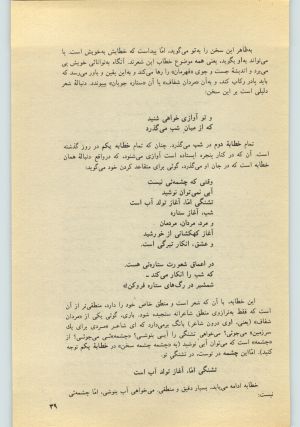 به‌ظاهر این سخن را به‌تو می‌گوید، امّا پیداست که خطابش به‌خویش است. یا
می‌تواند به‌او بگوید، یعنی همه موضوع خطاب این شعرند. آنگاه به‌توانائی خویش پی
می‌برد و اندیشهٔ جست و جوی «قهرمان» را رها می‌کند و به‌این یقین و باور می‌رسد که
باید پادر رکاب کند، و به‌آن «مردان شفاف» یا آن «ستاره جویان» بپیوندد. دنبالهٔ شعر
دلیلی است بر این سخن:
و تو آوازی خواهی شنید
که از میان شب می‌گذرد
تمام خطابهٔ دوم در شب می‌گذرد. چنان که تمام خطابه یکم در روز گذشته
است. آن که در کنار پنجره ایستاده است آوازی می‌شنود، که درواقع دنبالهٔ همان
خطابه است که در جان او می‌گذرد، گوئی برای متقاعد کردن خود می‌گوید:
وقتی که چشمه‌ئی نیست
آبی نمی‌توان نوشید
تشنگی امّا، آغاز تولد آب است
شب، آغاز ستاره
و مرد، مردان، مردمان
آغاز کهکشانی از خورشید
و عشق، انکار تیرگی است.
در اعماق شعورت ستاره‌ئی هست.
که شب را انکار می‌کند ـ
شمشیر در رگ‌های ستاره فروکن!»
این خطابه، با آن که شعر است و منطق خاص خود را دارد، منطقی‌تر از آن
است که فقط به‌ترازوی منطق شاعرانه سنجیده شود. باری، گوئی یکی از «مردان
شفاف» (یعنی، آوی درون شاعر) بانگ برمی‌دارد که ای شاعر «مردی برای یک
سرزمین» می‌جوئی؟ می‌خواهی تشنگی را آبی بنوشی؟ «چشمه»ئی می‌جوئی؟ از
«چشمه» است که می‌توان آبی نوشید (به «چشمه چشمه سخن» در خطابهٔ یکم توجه
کنید). امّا این چشمه در توست، در تشنگی تو.
تشنگی امّا، آغاز تولد آب است
خطابه ادامه می‌یابد، بسیار دقیق و منطقی. می‌خواهی آب بنوشی، امّا چشمه‌ئی
نیست:
۳۹